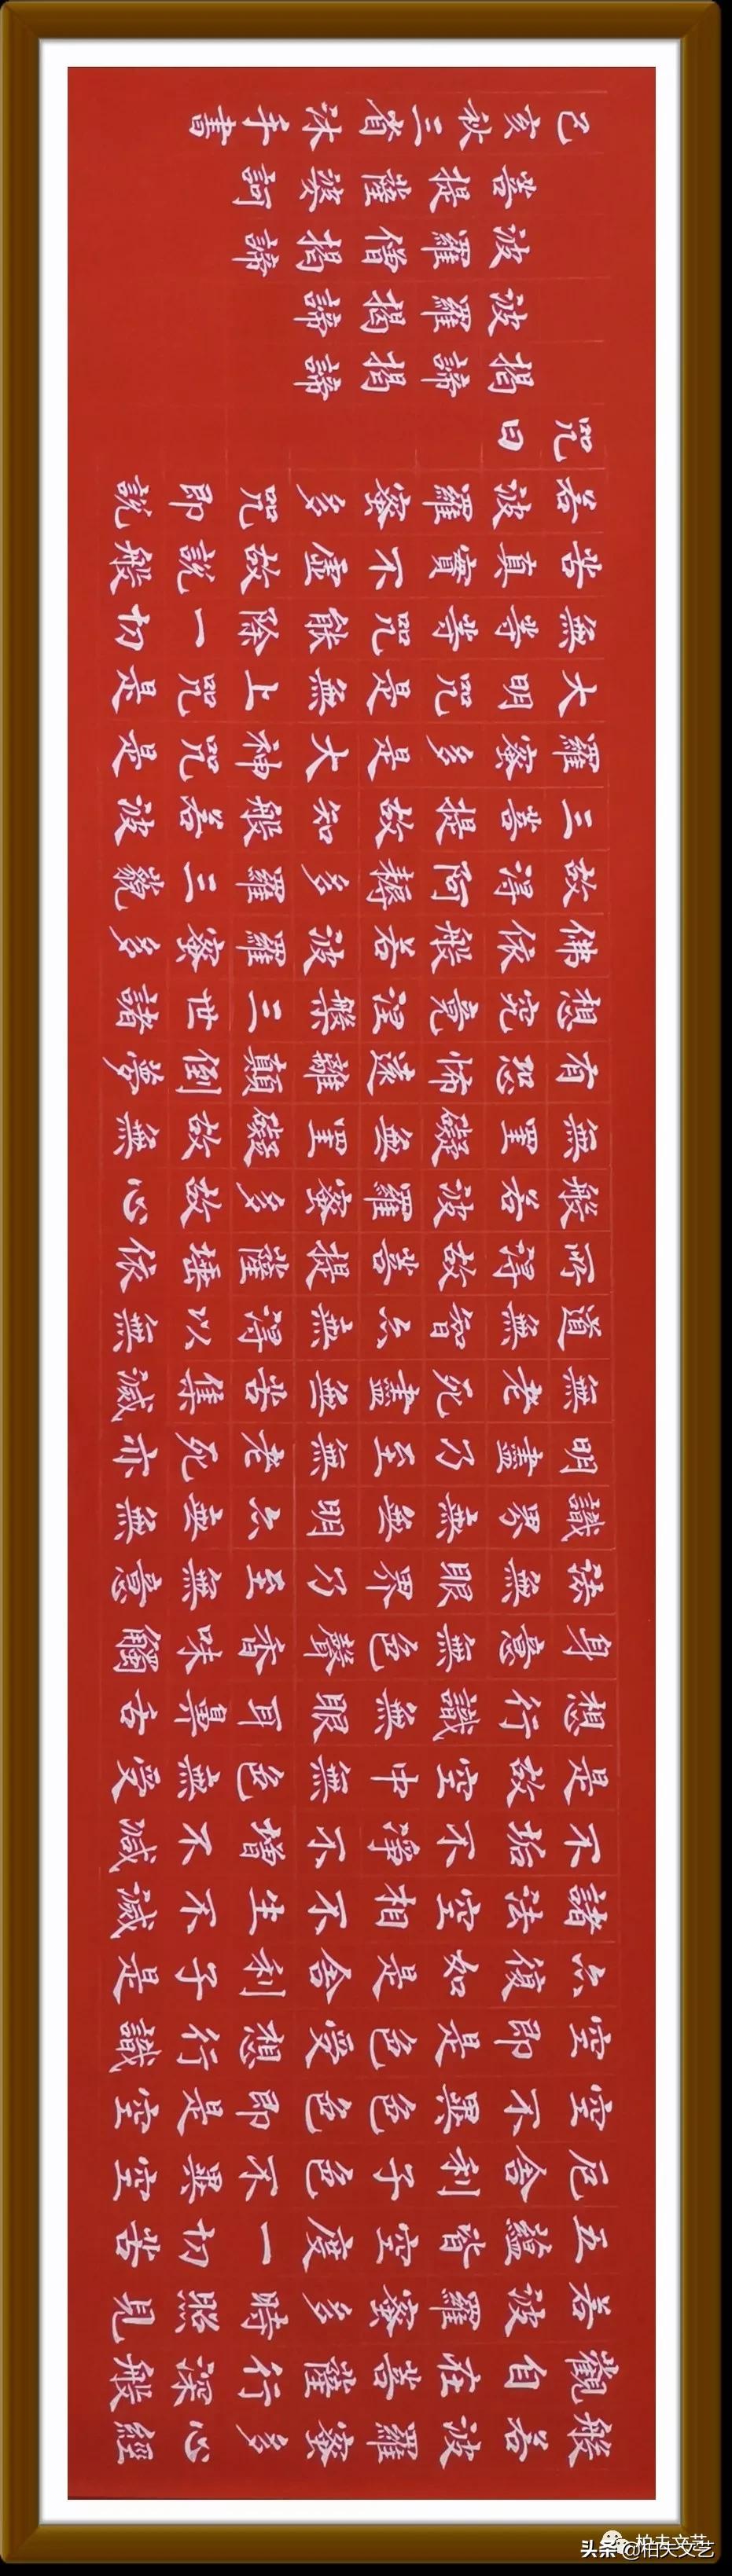 般若波羅蜜多心經
觀自在菩薩行深般
若波羅蜜多時照見
五蘊皆空度一切苦
厄舍利子色不異空
空不異色色即是空
空即是色受想行識
亦復如是舍利子是
諸法空相不生不滅
不垢不淨不增不减
是故空中無色無受
想行識無眼耳鼻舌
身意無色聲香味觸
法無眼界乃至無意
識界無無明亦無無
明盡乃至無老死亦
無老死盡無苦集滅
道無智亦無得以無
所得故菩提薩埵依
般若波羅蜜多故心
無罣礙無罣礙故無
有恐怖遠離顛倒夢
想究竟涅槃三世諸
佛依般若波羅蜜多
故得阿耨多羅三藐
三菩提故知般若波
羅蜜多是大神咒是
大明咒是無上咒是
無等等咒能除一切
苦真實不虛故說般
若波羅蜜多咒即說
咒曰
揭諦揭諦
波羅揭諦
波羅僧揭諦
菩提薩婆訶
己亥秋三省沐手書
柏夫文艺
头条@柏夫文艺